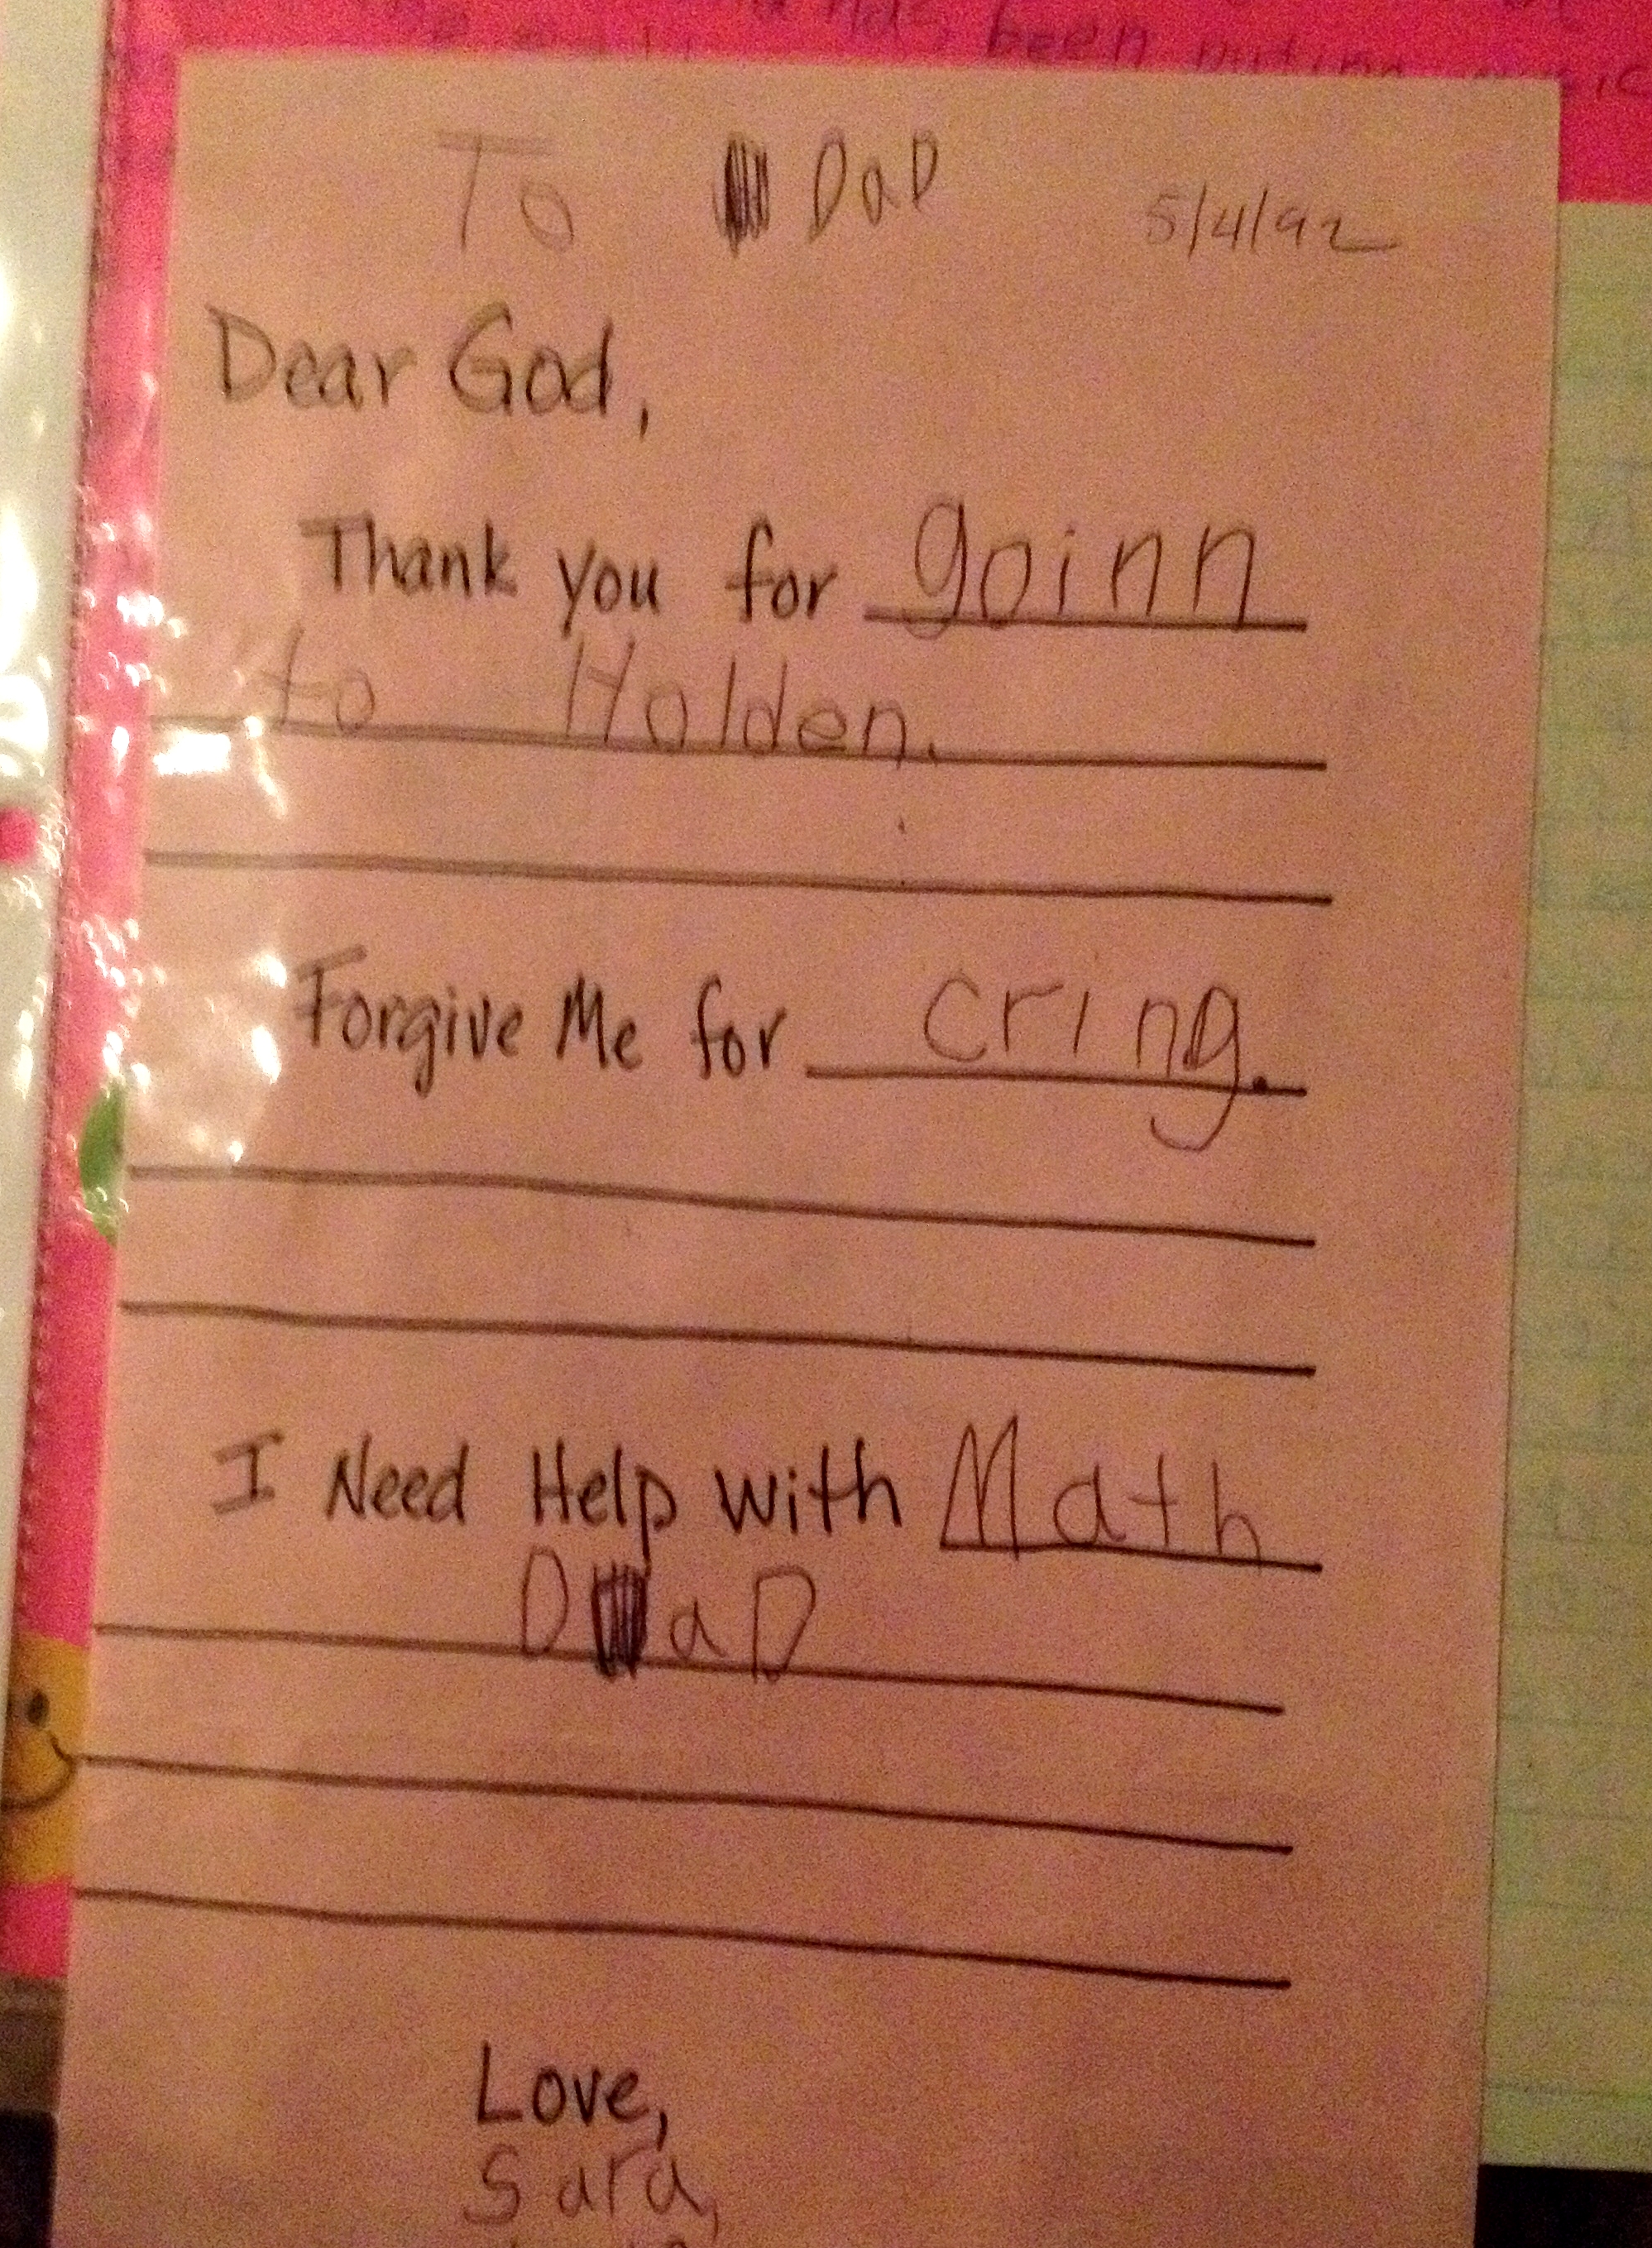 been
To DaD 5/4/92
Dear God,
Thank you for goinn
to Holden.
Forgive Me for cring.
I Need Help with Math
DaD
Love,
Sara,